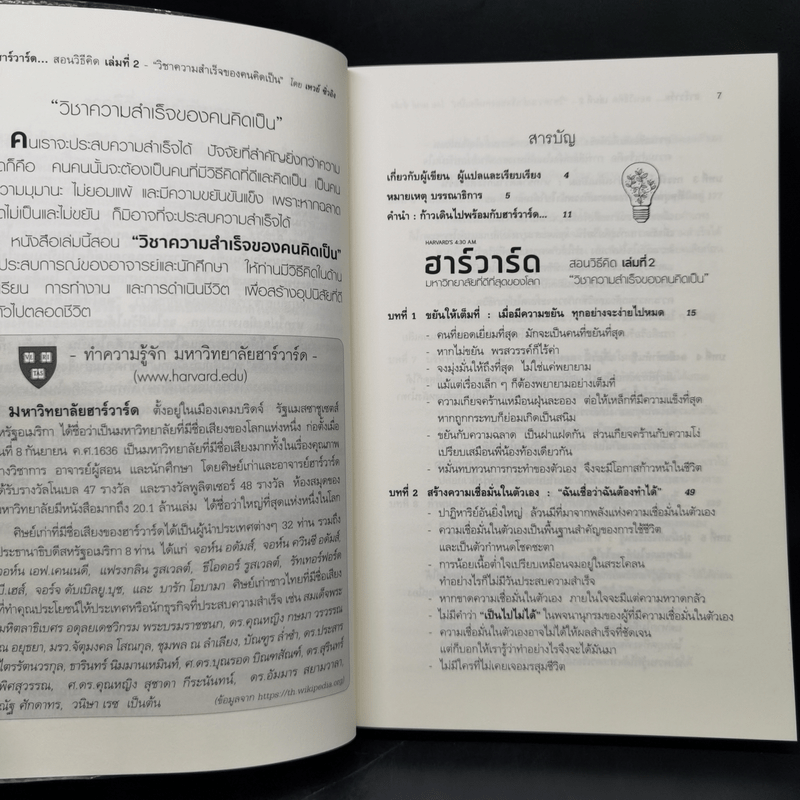 ฮาร์วาร์ด... สอนวิธีคิด เล่มที่ 2 - “วิชาความสำเร็จของคนคิดเป็น” โดย
“วิชาความสำเร็จของคนคิดเป็น”
คนเราจะประสบความสำเร็จได้ ปัจจัยที่สำคัญยิ่งกว่าความ
ก็คือ คนคนนั้นจะต้องเป็นคนที่มีวิธีคิดที่ดีและคิดเป็น เป็นคน
ความมุมานะ ไม่ยอมแพ้ และมีความขยันขันแข็ง เพราะหากฉลาด
คิดไม่เป็นและไม่ขยัน ก็มิอาจที่จะประสบความสำเร็จได้
หนังสือเล่มนี้สอน “วิชาความสำเร็จของคนคิดเป็น”
ประสบการณ์ของอาจารย์และนักศึกษา ให้ท่านมีวิธีคิดในด้าน
เรียน การทำงาน และการดำเนินชีวิต เพื่อสร้างอุปนิสัยที่ดี
ตัวไปตลอดชีวิต
- ทำความรู้จัก มหาวิทยาลัยฮาร์วาร์ด -
(www.harvard.edu)
มหาวิทยาลัยฮาร์วาร์ด ตั้งอยู่ในเมืองเคมบริดจ์ รัฐแมสซาชูเซตส์
สหรัฐอเมริกา ได้ชื่อว่าเป็นมหาวิทยาลัยที่มีชื่อเสียงของโลกแห่งหนึ่ง ก่อตั้งเมื่อ
ที่ 8 กันยายน ค.ศ.1636 เป็นมหาวิทยาลัยที่มีชื่อเสียงมากทั้งในเรื่องคุณภาพ
ทางวิชาการ อาจารย์ผู้สอน และนักศึกษา โดยศิษย์เก่าและอาจารย์ฮาร์วาร์ด
ได้รับรางวัลโนเบล 47 รางวัล และรางวัลพูลิตเซอร์ 48 รางวัล ห้องสมุดของ
มหาวิทยาลัยมีหนังสือมากถึง 20.1 ล้านเล่ม ได้ชื่อว่าใหญ่ที่สุดแห่งหนึ่งในโลก
ศิษย์เก่าที่มีชื่อเสียงของฮาร์วาร์ดได้เป็นผู้นำประเทศต่างๆ 32 ท่าน รวมถึง
ประธานาธิบดีสหรัฐอเมริกา 8 ท่าน ได้แก่ จอห์น อดัมส์, จอห์น ควินซี อดัมส์,
จอห์น เอฟ.เคนเนดี, แฟรงกลิน รูสเวลต์, ธีโอดอร์ รูสเวลต์, รัทเทอร์ฟอร์ด
บี.เฮส์, จอร์จ ดับเบิลยู.บุช, และ บารัก โอบามา ศิษย์เก่าชาวไทยที่มีชื่อเสียง
ที่ทำคุณประโยชน์ให้ประเทศหรือนักธุรกิจที่ประสบความสำเร็จ เช่น สมเด็จพระ
มหิตลาธิเบศร อดุลยเดชวิกรม พระบรมราชชนก, ดร.คุณหญิง กษมา วรวรรณ
ณ อยุธยา, มรว.จัตุมงคล โสณกุล, ชุมพล ณ ลำเลียง, บัณฑูร ล่ำซำ, ดร.ประสาร
ไตรรัตนวรกุล, ธารินทร์ นิมมานเหมินท์, ศ.ดร.บุณรอด บิณฑสัณฑ์, ดร.สุรินทร์
พิศสุวรรณ, ศ.ดร.คุณหญิง สุชาดา กีระนันทน์, ดร.อัมมาร สยามวาลา,
ณัฐ ศักดาทร, วนิษา เรซ เป็นต้น (ข้อมูลจาก https://th.wikipedia.org)
7
สารบัญ
เกี่ยวกับผู้เขียน ผู้แปลและเรียบเรียง 4
หมายเหตุ บรรณาธิการ 5
คำนำ : ก้าวเดินไปพร้อมกับฮาร์วาร์ด... 11
HARVARD'S 4:30 AM
ฮาร์วาร์ด สอนวิธีคิด เล่มที่ 2
มหาวิทยาลัยที่ดีที่สุดของโลก “วิชาความสำเร็จของคนคิดเป็น”
บทที่ 1 ขยันให้เต็มที่ : เมื่อมีความขยัน ทุกอย่างจะง่ายไปหมด 15
- คนที่ยอดเยี่ยมที่สุด มักจะเป็นคนที่ขยันที่สุด
- หากไม่ขยัน พรสวรรค์ก็ไร้ค่า
- จงมุ่งมั่นให้ถึงที่สุด ไม่ใช่แค่พยายาม
- แม้แต่เรื่องเล็ก ๆ ก็ต้องพยายามอย่างเต็มที่
- ความเกียจคร้านเหมือนฝุ่นละออง ต่อให้เหล็กที่มีความแข็งที่สุด
หากถูกกระทบก็ย่อมเกิดเป็นสนิม
- ขยันกับความฉลาด เป็นฝาแฝดกัน ส่วนเกียจคร้านกับความโง่
เปรียบเสมือนพี่น้องท้องเดียวกัน
- หมั่นทบทวนการกระทำของตัวเอง จึงจะมีโอกาสก้าวหน้าในชีวิต
บทที่ 2 สร้างความเชื่อมั่นในตัวเอง : “ฉันเชื่อว่าฉันต้องทำได้” 49
- ปาฏิหาริย์อันยิ่งใหญ่ ล้วนมีที่มาจากพลังแห่งความเชื่อมั่นในตัวเอง
- ความเชื่อมั่นในตัวเองเป็นพื้นฐานสำคัญของการใช้ชีวิต
และเป็นตัวกำหนดโชคชะตา
- การน้อยเนื้อต่ำใจเปรียบเหมือนจมอยู่ในสระโคลน
ทำอย่างไรก็ไม่มีวันประสบความสำเร็จ
- หากขาดความเชื่อมั่นในตัวเอง ภายในใจจะมีแต่ความหวาดกลัว
- ไม่มีคำว่า “เป็นไปไม่ได้” ในพจนานุกรมของผู้ที่มีความเชื่อมั่นในตัวเอง
- ความเชื่อมั่นในตัวเองอาจไม่ได้ให้ผลสำเร็จที่ชัดเจน
แต่ก็บอกให้เรารู้ว่าทำอย่างไรจึงจะได้มันมา
- ไม่มีใครที่ไม่เคยเจอมรสุมชีวิต